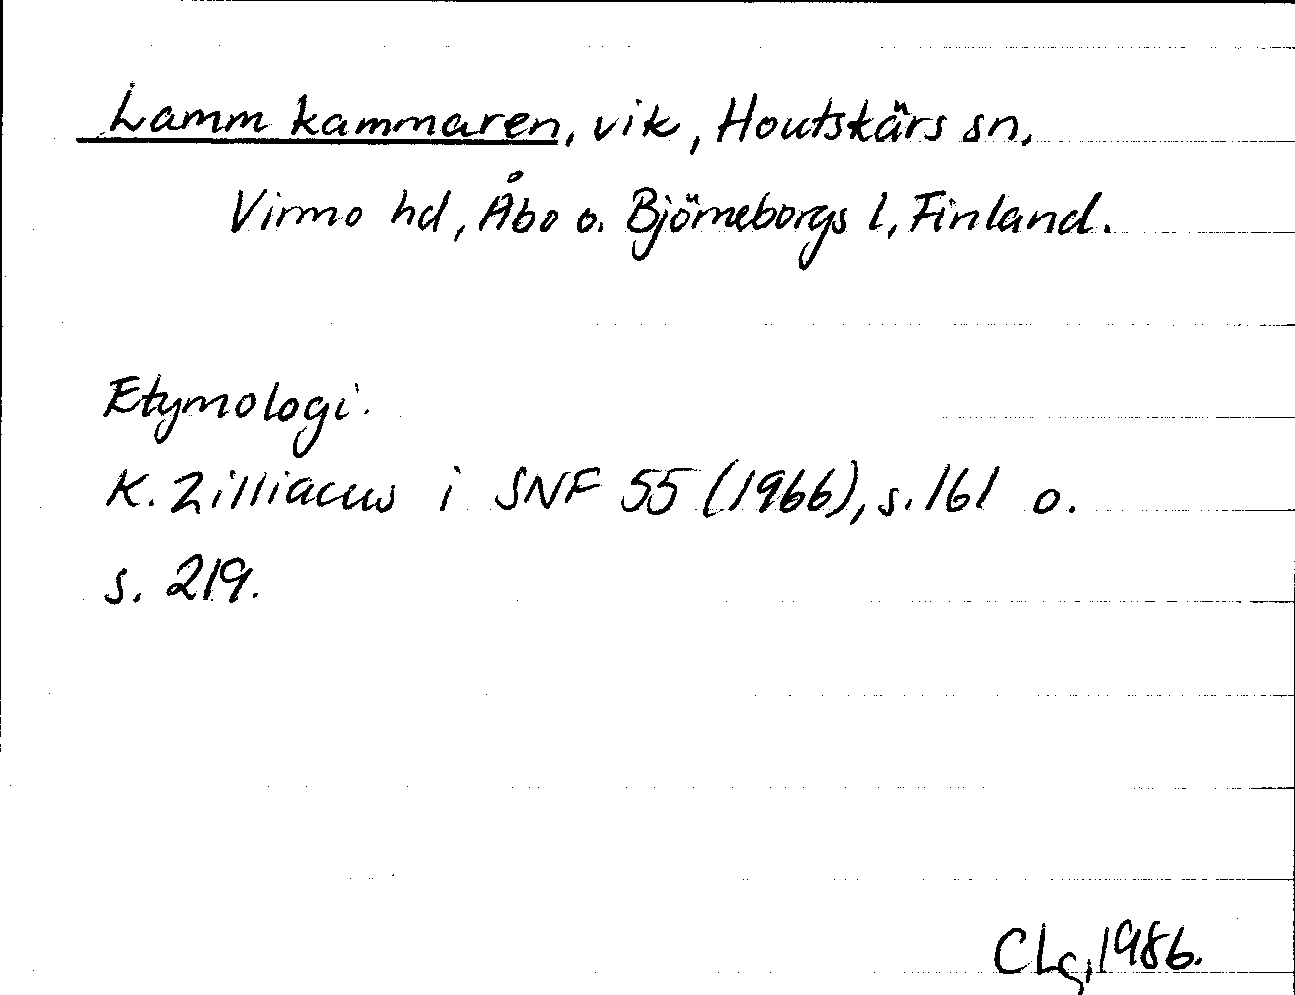 Lamm kammaren, vik, Houtskärs sn,
Virmo hd, Åbo o. Björneborgs l, Finland.
Etymologi.
K. Zilliacus i SNF 55 (1966), s. 161 o.
s. 219.
CLg, 1986.